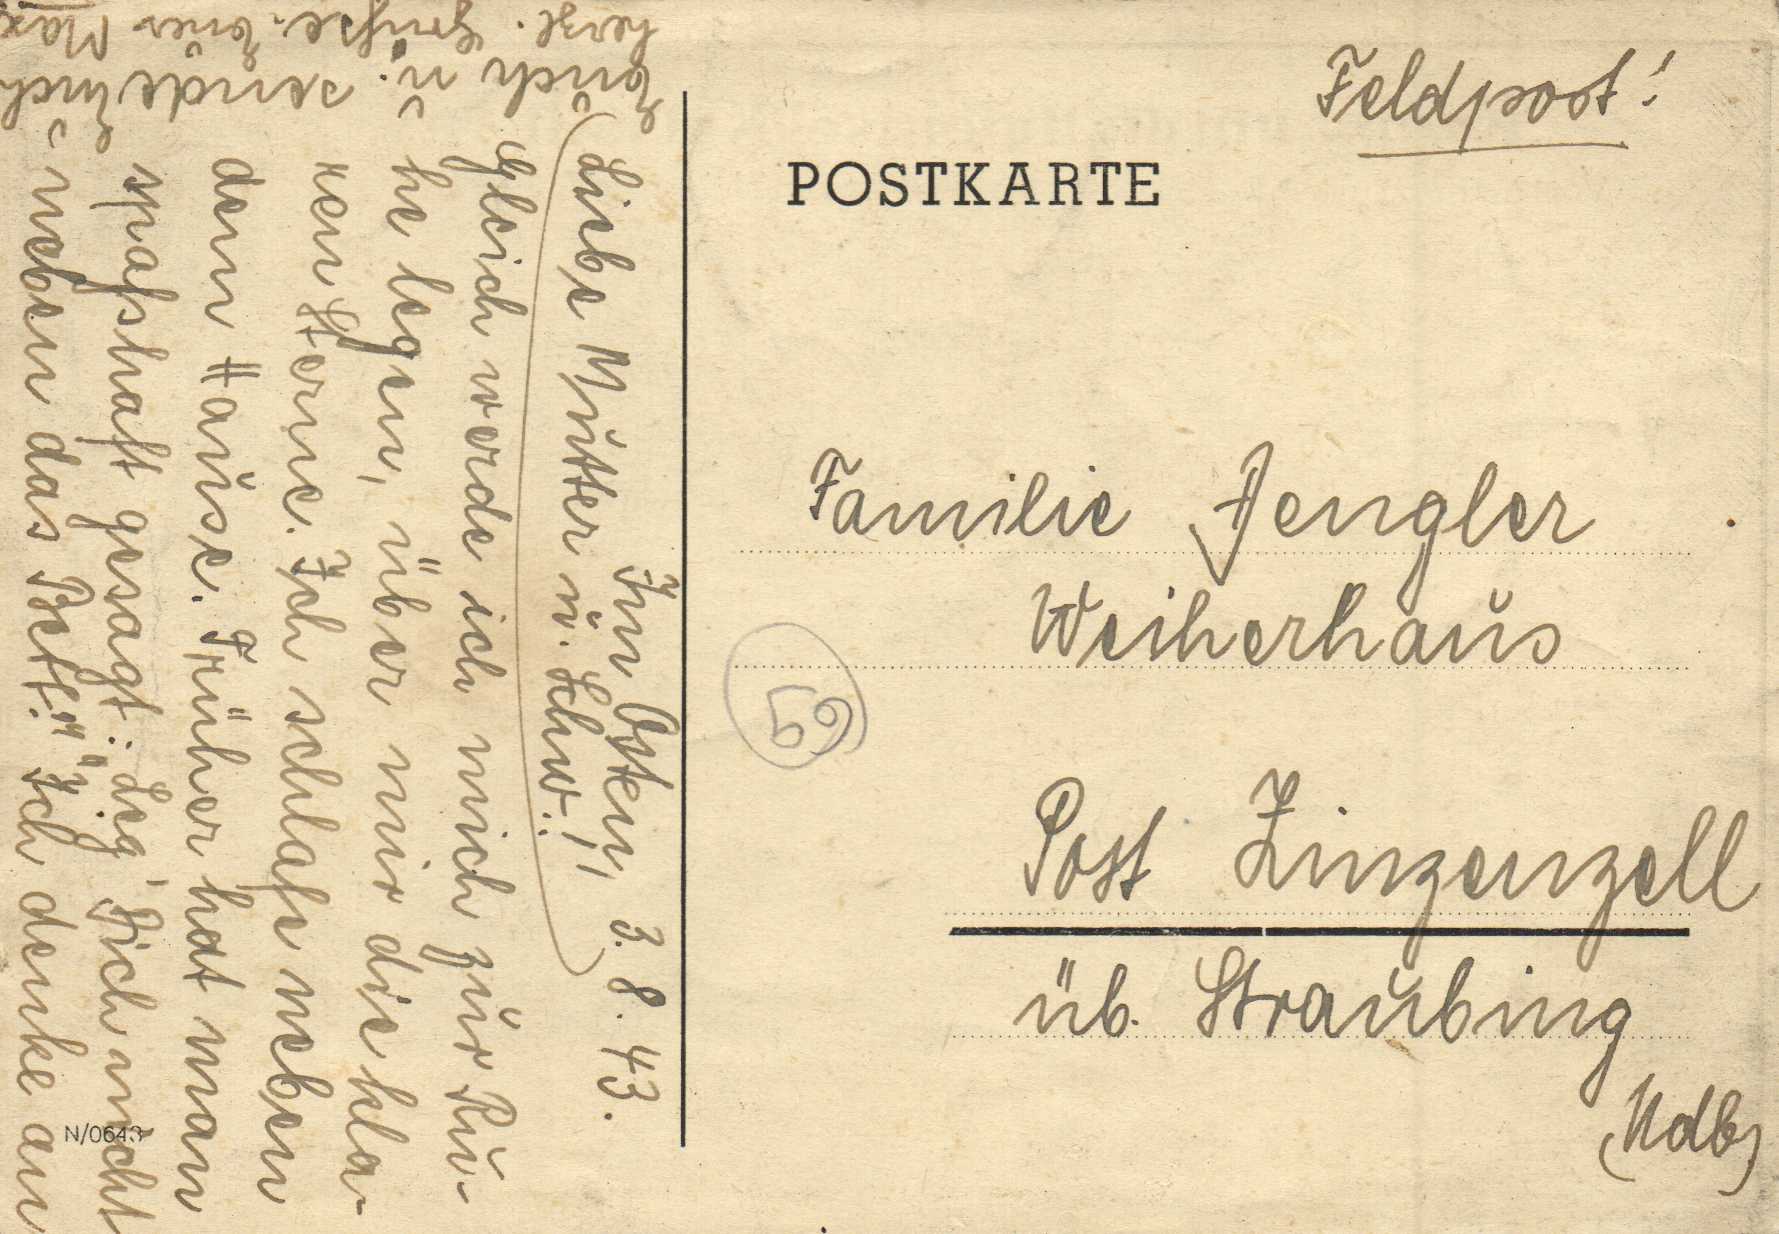 Feldpost!
POSTKARTE
Familie Jengler
Weiherhaus
59
Post Zinzenzell
üb. Straubing
(Ndb)
Im Osten, 3.8.43.
Liebe Mutter u. Schw.!!
Gleich werde ich mich zur Ru-
he legen, über mir die kla-
ren Sterne. Ich schlafe neben
dem Hause. Früher hat man
spaßhaft gesagt: „Leg' Dich nicht
neben das Bett!“ Ich denke an
Euch u. sende Euch
herzl. Grüße. Euer Max
N/0643